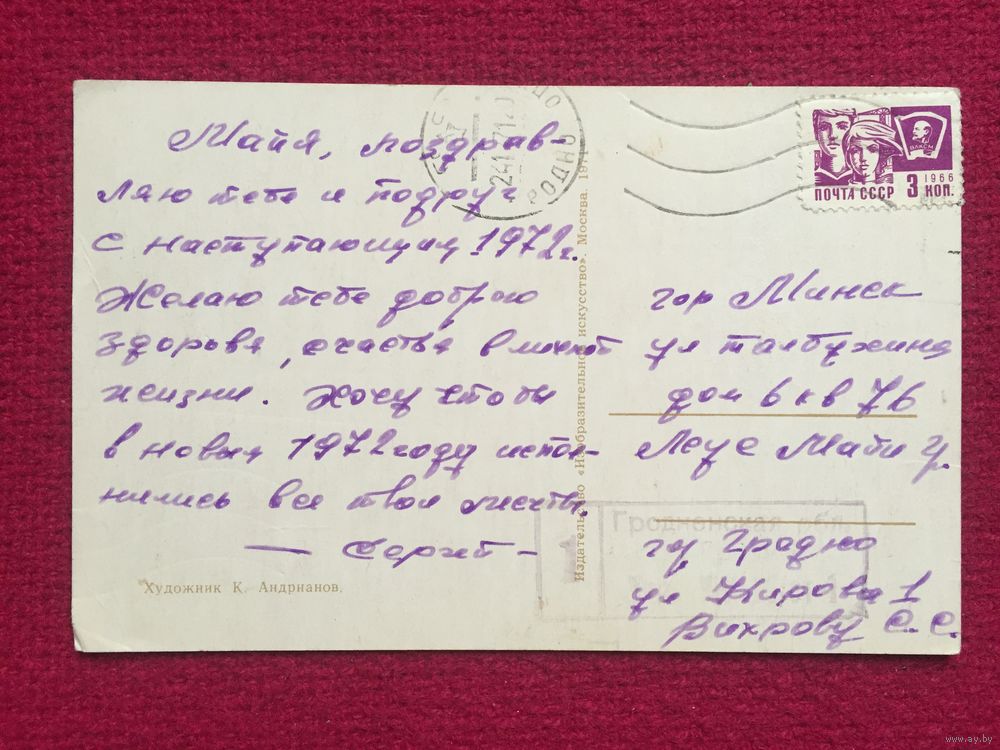 Майя, поздрав-
ляю тебе и подруг
с наступающим 1972г.
Желаю тебе доброго
здоровя, счастья в личной
жизни. Хочу чтобы
в новым 1972 году испол-
нились все твои мечты.
— Сергей —
Художник К. Андрианов.
Издательство «Изобразительное искусство». Москва. 19
ПОЧТА СССР 3 КОП.
1966
ВЛКСМ
гор Минск
ул Талбухина
дом 6 кв 76
Леус Майи
Гродненская обл.
гор Гродно
ул Кирова 1
Вихрову С. С.
www.ay.by